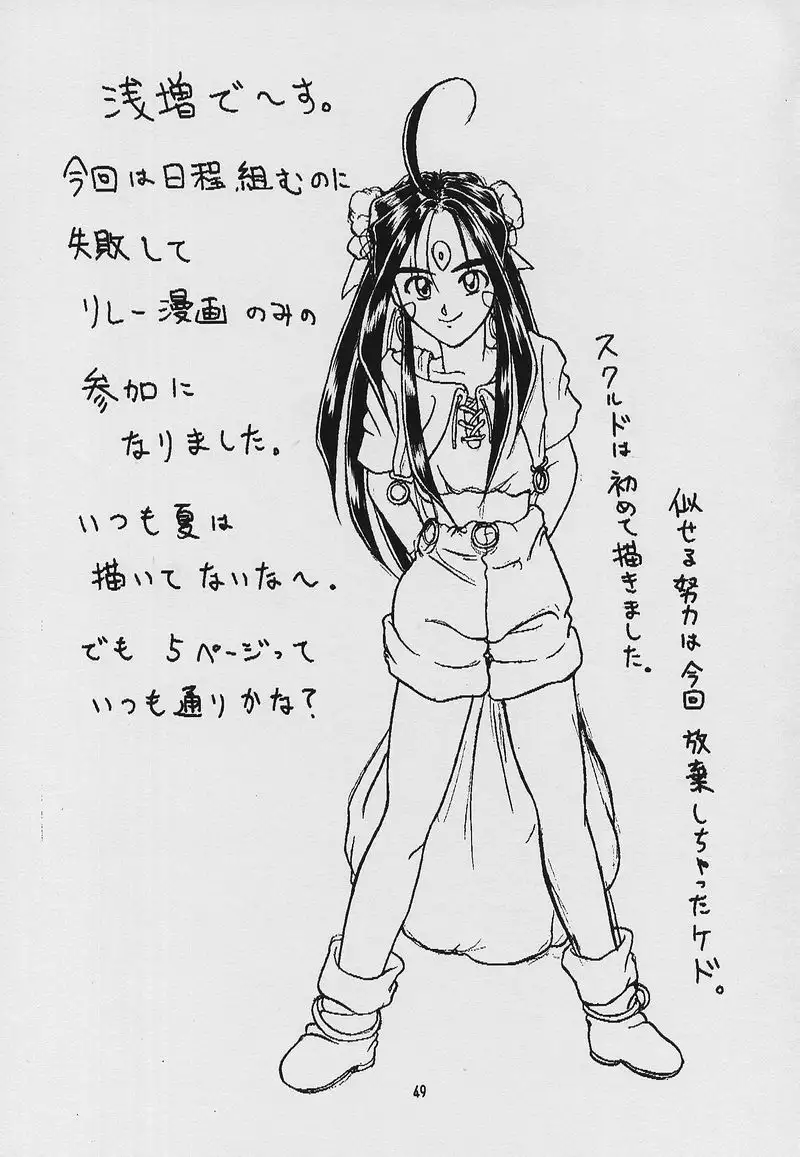 浅増で〜す。
今回は日程組むのに
失敗して
リレー漫画のみの
参加に
なりました。
いつも夏は
描いてないな〜。
でも 5ページって
いつも通りかな?
スクルドは初めて描きました。
似せる努力は今回 放棄しちゃったケド。
49